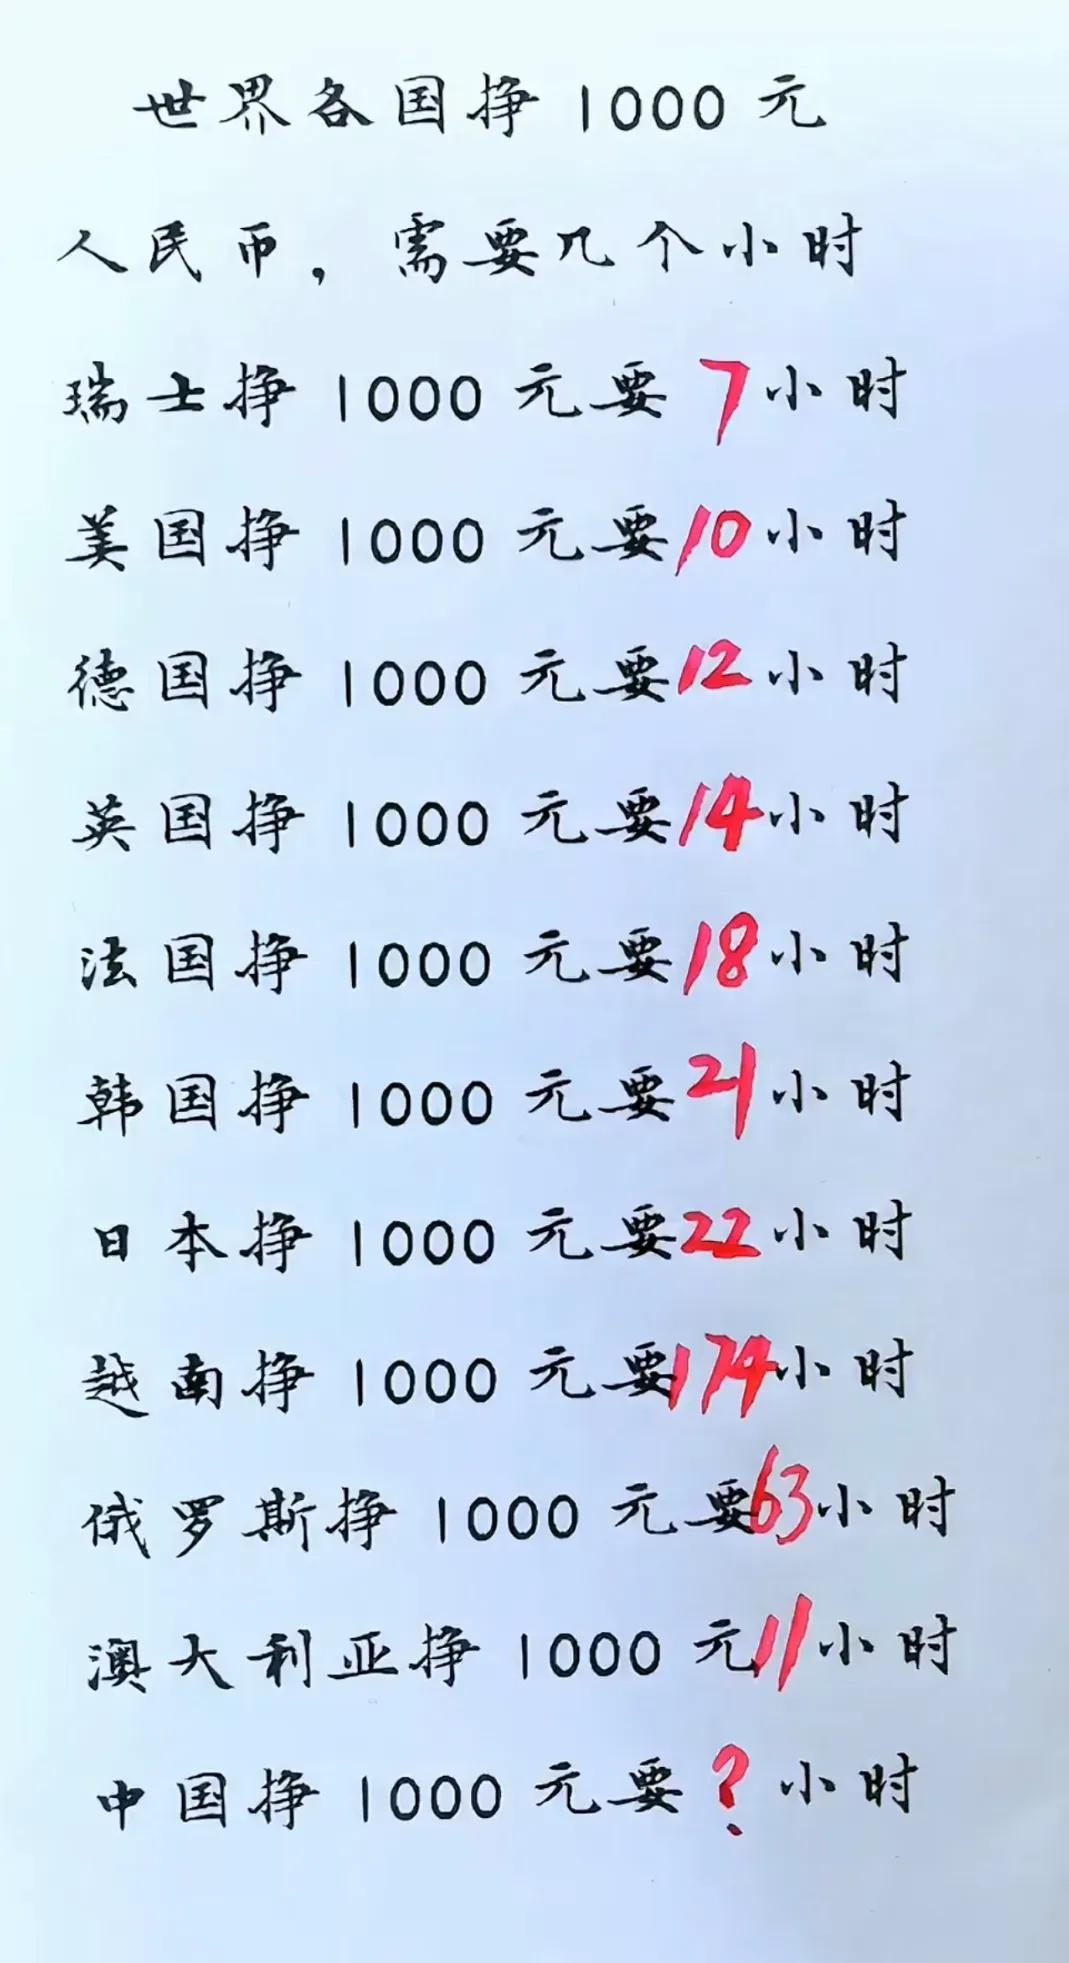 世界各国挣1000元
人民币，需要几个小时
瑞士挣1000元要7小时
美国挣1000元要10小时
德国挣1000元要12小时
英国挣1000元要14小时
法国挣1000元要18小时
韩国挣1000元要21小时
日本挣1000元要22小时
越南挣1000元要174小时
俄罗斯挣1000元要63小时
澳大利亚挣1000元11小时
中国挣1000元要?小时